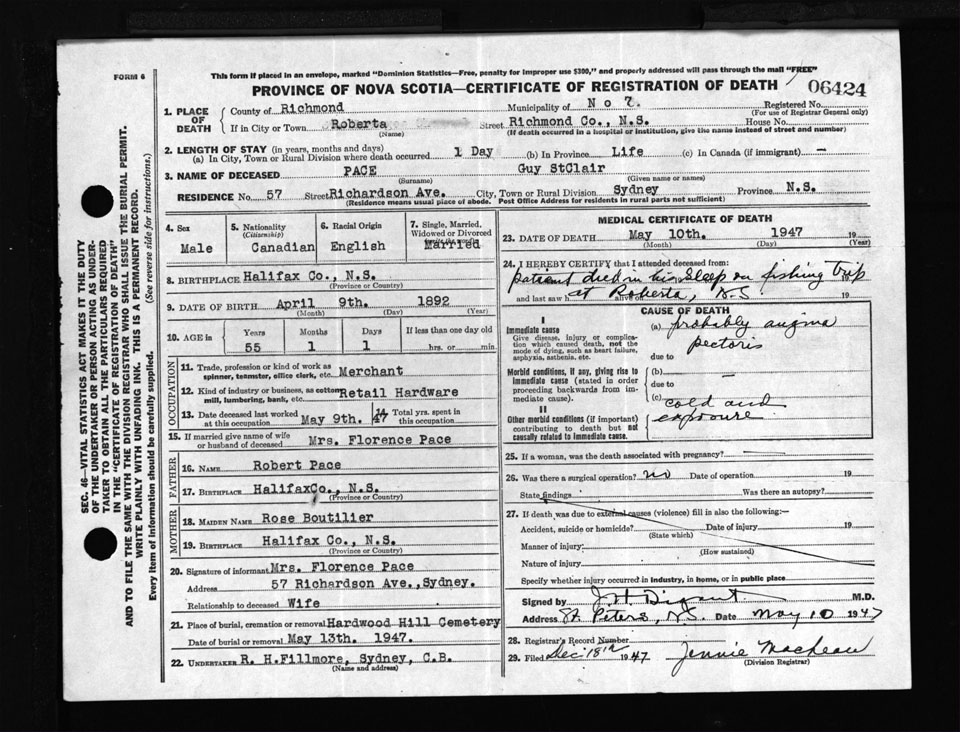 FORM 6
This form if placed in an envelope, marked "Dominion Statistics—Free, penalty for improper use $300," and properly addressed will pass through the mail "FREE"
PROVINCE OF NOVA SCOTIA—CERTIFICATE OF REGISTRATION OF DEATH
06424
SEC. 46—VITAL STATISTICS ACT MAKES IT THE DUTY
OF THE UNDERTAKER OR PERSON ACTING AS UNDER-
TAKER TO OBTAIN ALL THE PARTICULARS REQUIRED
IN THE "CERTIFICATE OF REGISTRATION OF DEATH"
AND TO FILE THE SAME WITH THE DIVISION REGISTRAR WHO SHALL ISSUE THE BURIAL PERMIT.
WRITE PLAINLY WITH UNFADING INK. THIS IS A PERMANENT RECORD.
Every item of information should be carefully supplied. (See reverse side for instructions.)
1. PLACE OF DEATH
County of Richmond Municipality of No 7. Registered No.
(For use of Registrar General only)
If in City or Town Roberta Street Richmond Co., N.S. House No.
(Name) (If death occurred in a hospital or institution, give the name instead of street and number)
2. LENGTH OF STAY (in years, months and days)
(a) In City, Town or Rural Division where death occurred 1 Day (b) In Province Life (c) In Canada (if immigrant) —
3. NAME OF DECEASED PACE Guy StClair
(Surname) (Given name or names)
RESIDENCE No. 57 Street Richardson Ave. City, Town or Rural Division Sydney Province N.S.
(Residence means usual place of abode. Post Office Address for residents in rural parts not sufficient)
4. Sex
Male
5. Nationality
(Citizenship)
Canadian
6. Racial Origin
English
7. Single, Married,
Widowed or Divorced
Married
8. BIRTHPLACE Halifax Co., N.S.
(Province or Country)
9. DATE OF BIRTH April 9th. 1892
(Month) (Day) (Year)
10. AGE in
Years Months Days If less than one day old
55 1 1 hrs. or min.
OCCUPATION
11. Trade, profession or kind of work as
spinner, teamster, office clerk, etc. Merchant
12. Kind of industry or business, as cotton
mill, lumbering, bank, etc. Retail Hardware
13. Date deceased last worked
at this occupation May 9th. 47 Total yrs. spent in
this occupation
15. If married give name of wife
or husband of deceased Mrs. Florence Pace
FATHER
16. NAME Robert Pace
17. BIRTHPLACE HalifaxCo., N.S.
(Province or Country)
MOTHER
18. MAIDEN NAME Rose Boutilier
19. BIRTHPLACE Halifax Co., N.S.
(Province or Country)
20. Signature of informant Mrs. Florence Pace
Address 57 Richardson Ave.,Sydney.
Relationship to deceased Wife
21. Place of burial, cremation or removal Hardwood Hill Cemetery
Date of burial or removal May 13th. 1947.
22. UNDERTAKER R. H.Fillmore, Sydney, C.B.
(Name and address)
MEDICAL CERTIFICATE OF DEATH
23. DATE OF DEATH May 10th. 1947
(Month) (Day) (Year)
24. I HEREBY CERTIFY that I attended deceased from:
patient died in his sleep on fishing trip 19
and last saw h alive on at Roberta, N.S 19
CAUSE OF DEATH
I
Immediate cause
Give disease, injury or complica-
tion which caused death, not the
mode of dying, such as heart failure,
asphyxia, asthenia, etc.
(a) probably angina
pectoris
due to
Morbid conditions, if any, giving rise to
immediate cause (stated in order
proceeding backwards from im-
mediate cause).
(b) —
due to
(c) cold and
exposure
II
Other morbid conditions (if important)
contributing to death but not
causally related to immediate cause.
25. If a woman, was the death associated with pregnancy?
26. Was there a surgical operation? no Date of operation 19
State findings Was there an autopsy?
27. If death was due to external causes (violence) fill in also the following:—
Accident, suicide or homicide? Date of injury 19
(State which)
Manner of injury
(How sustained)
Nature of injury
Specify whether injury occurred in industry, in home, or in public place
Signed by M.D.
Address St. Peters, N.S. Date May 10 1947
28. Registrar's Record Number
29. Filed Dec. 18th 1947 Jennie MacLean
(Division Registrar)